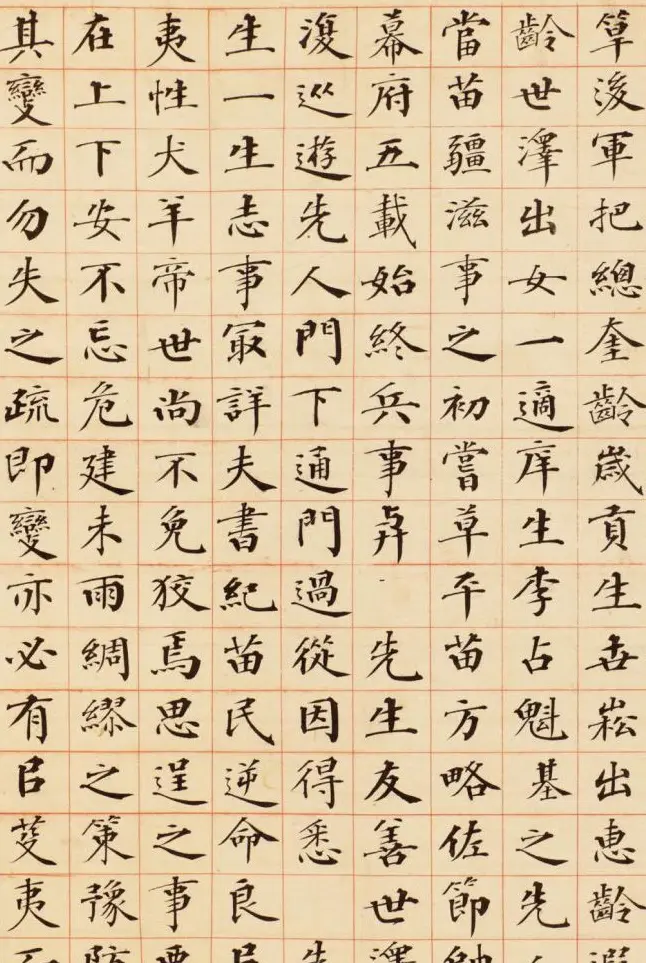 筸後軍把總奎齡歲貢生世崧出惠齡遐
齡世澤出女一適庠生李占魁基之先
當苗疆滋事之初嘗草平苗方略佐節
幕府五載始終兵事弁先生友善世澤
復巡遊先人門下通門過從因得悉先
生一生志事冣詳夫書紀苗民逆命良㠯
夷性犬羊帝世尚不免狡焉思逞之事要
在上下安不忘危建未雨綢繆之策豫防
其變而勿失之疏即變亦必有㠯芟夷而